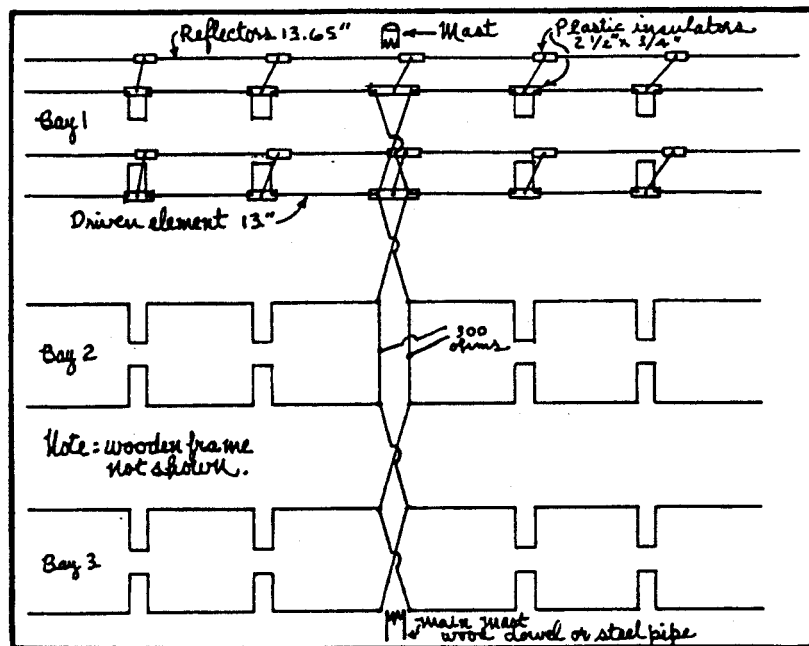 Reflectors 13.65"
Mast
Plastic insulators
2 1/2" x 3/4"
Bay 1
Driven element 13"
Bay 2
300
ohms
Note = wooden frame
not shown.
Bay 3
Main mast
wood dowel or steel pipe